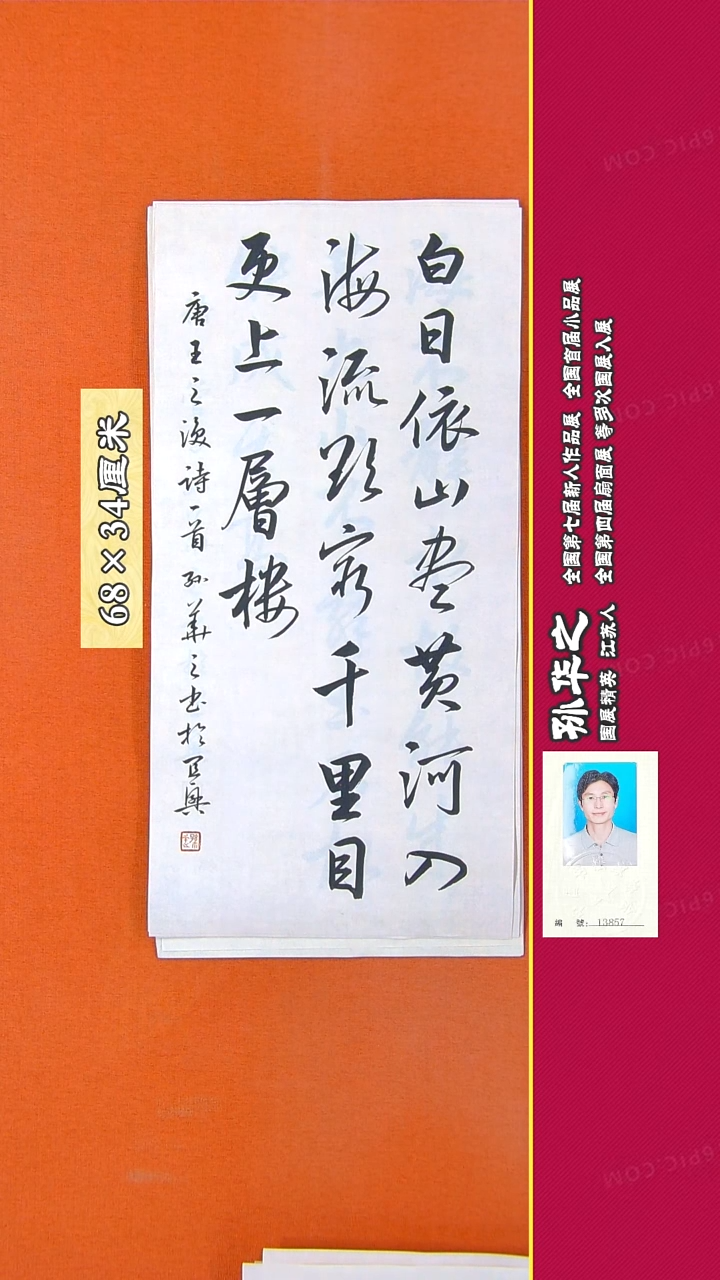 白日依山尽黄河入
海流欲穷千里目
更上一層楼
唐王之涣诗一首孙華之书於宜興
68×34厘米
孙华之
国展精英 江苏人
全国第七届新人作品展 全国首届小品展
全国第四届扇面展 等多次国展入展
編 號: 13857
6PIC.COM